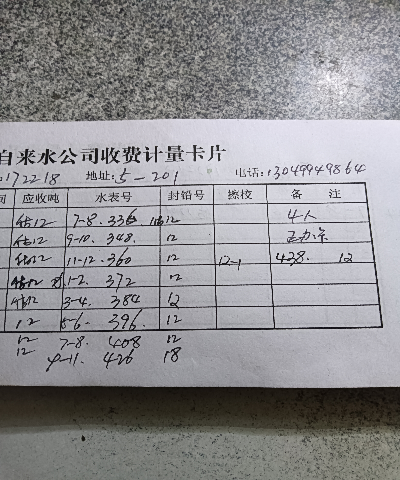 自来水公司收费计量卡片
172218 地址:5-201 电话:13049949864
间 应收吨 水表号 封铅号 擦校 备 注
估12 7-8. 336 12 4人
估12 9-10. 348. 12
估12 11-12. 360 12 12-1 428. 12
估12 1-2. 372 12
估12 3-4. 384 12
12 5-6. 396. 12
12 7-8. 408 12
12 9-11. 426 18